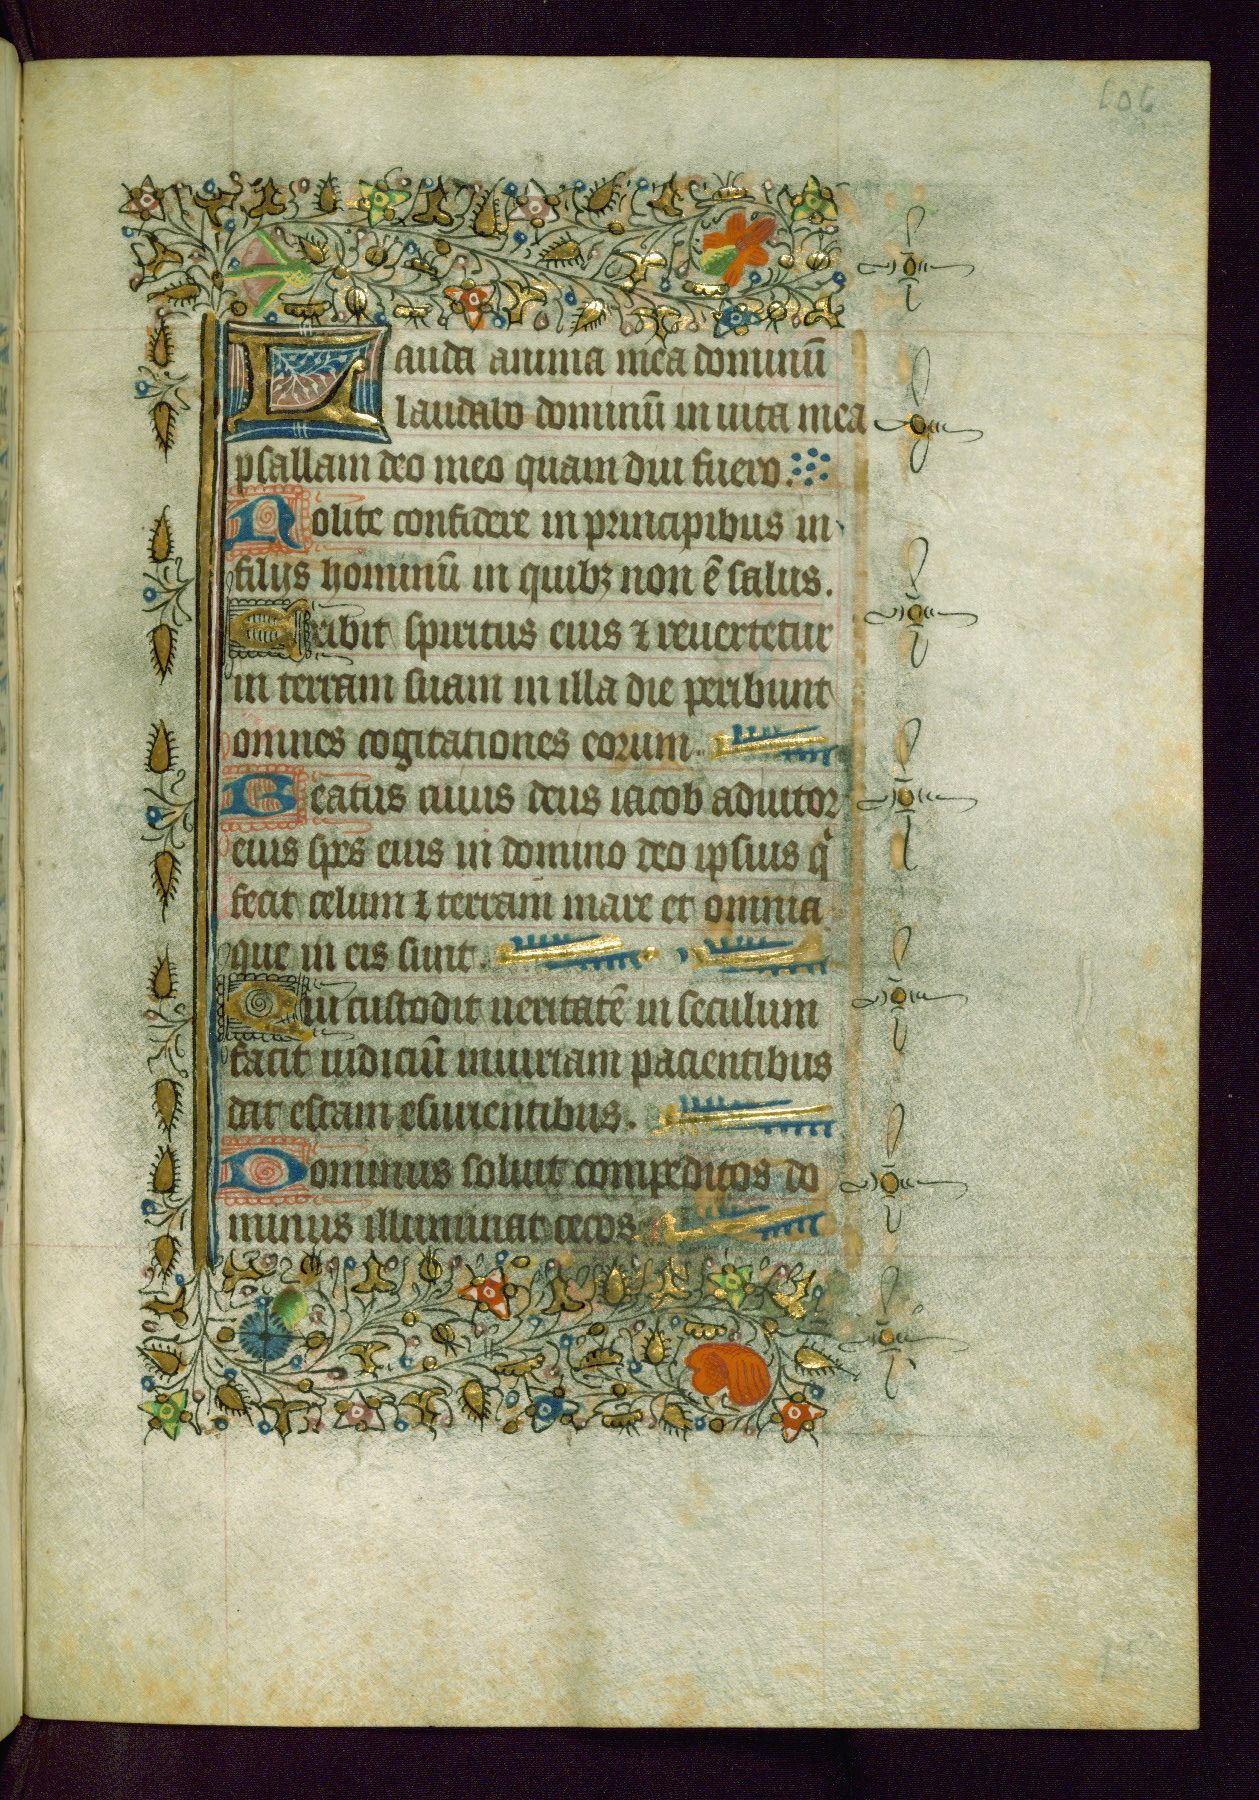 106
Lauda anima mea dominū
laudabo dominū in uita mea
psallam deo meo quam diu fuero.
Nolite confidere in principibus in
filijs hominū in quibꝫ non ē salus.
Exibit spiritus eius ⁊ reuertetur
in terram suam in illa die peribunt
omnes cogitationes eorum.
Beatus cuius deus iacob adiutor
eius spes eius in domino deo ipsius qͥ
fecit celum ⁊ terram mare et omnia
que in eis sunt.
Qui custodit ueritatē in seculum
facit iudiciū iniuriam pacientibus
dat escam esurientibus.
Dominus soluit compeditos do
minus illuminat cecos